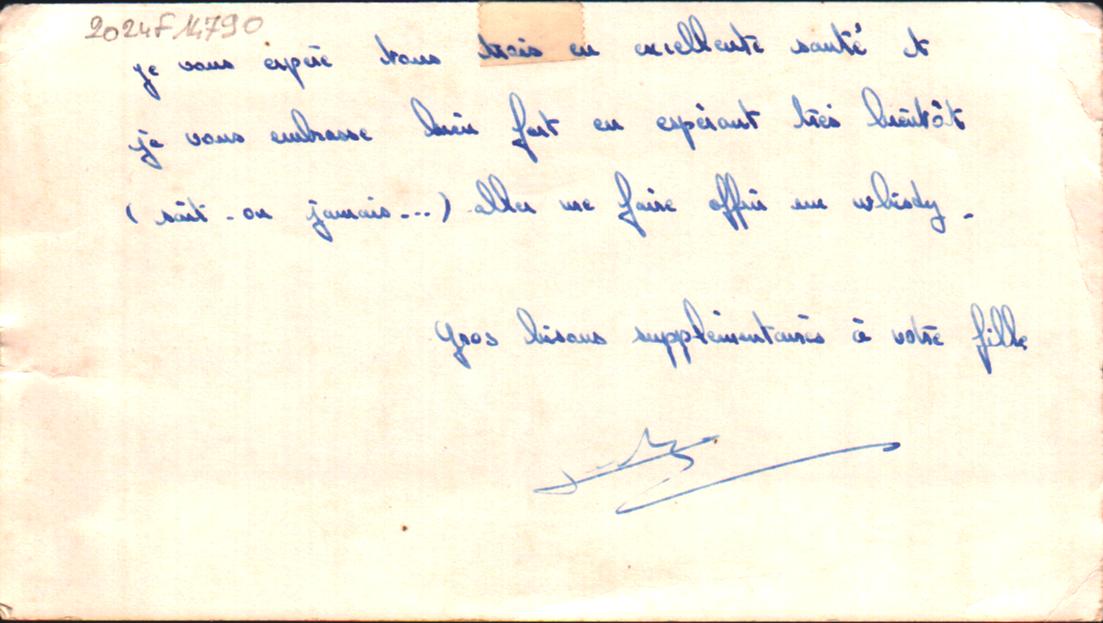 2024F14790
je vous espère tous trois en excellente santé et
je vous embrasse bien fort en espérant très bientôt
( soit - ou jamais ---) aller me faire offrir un whisky -
Gros bisous supplémentaires à votre fille